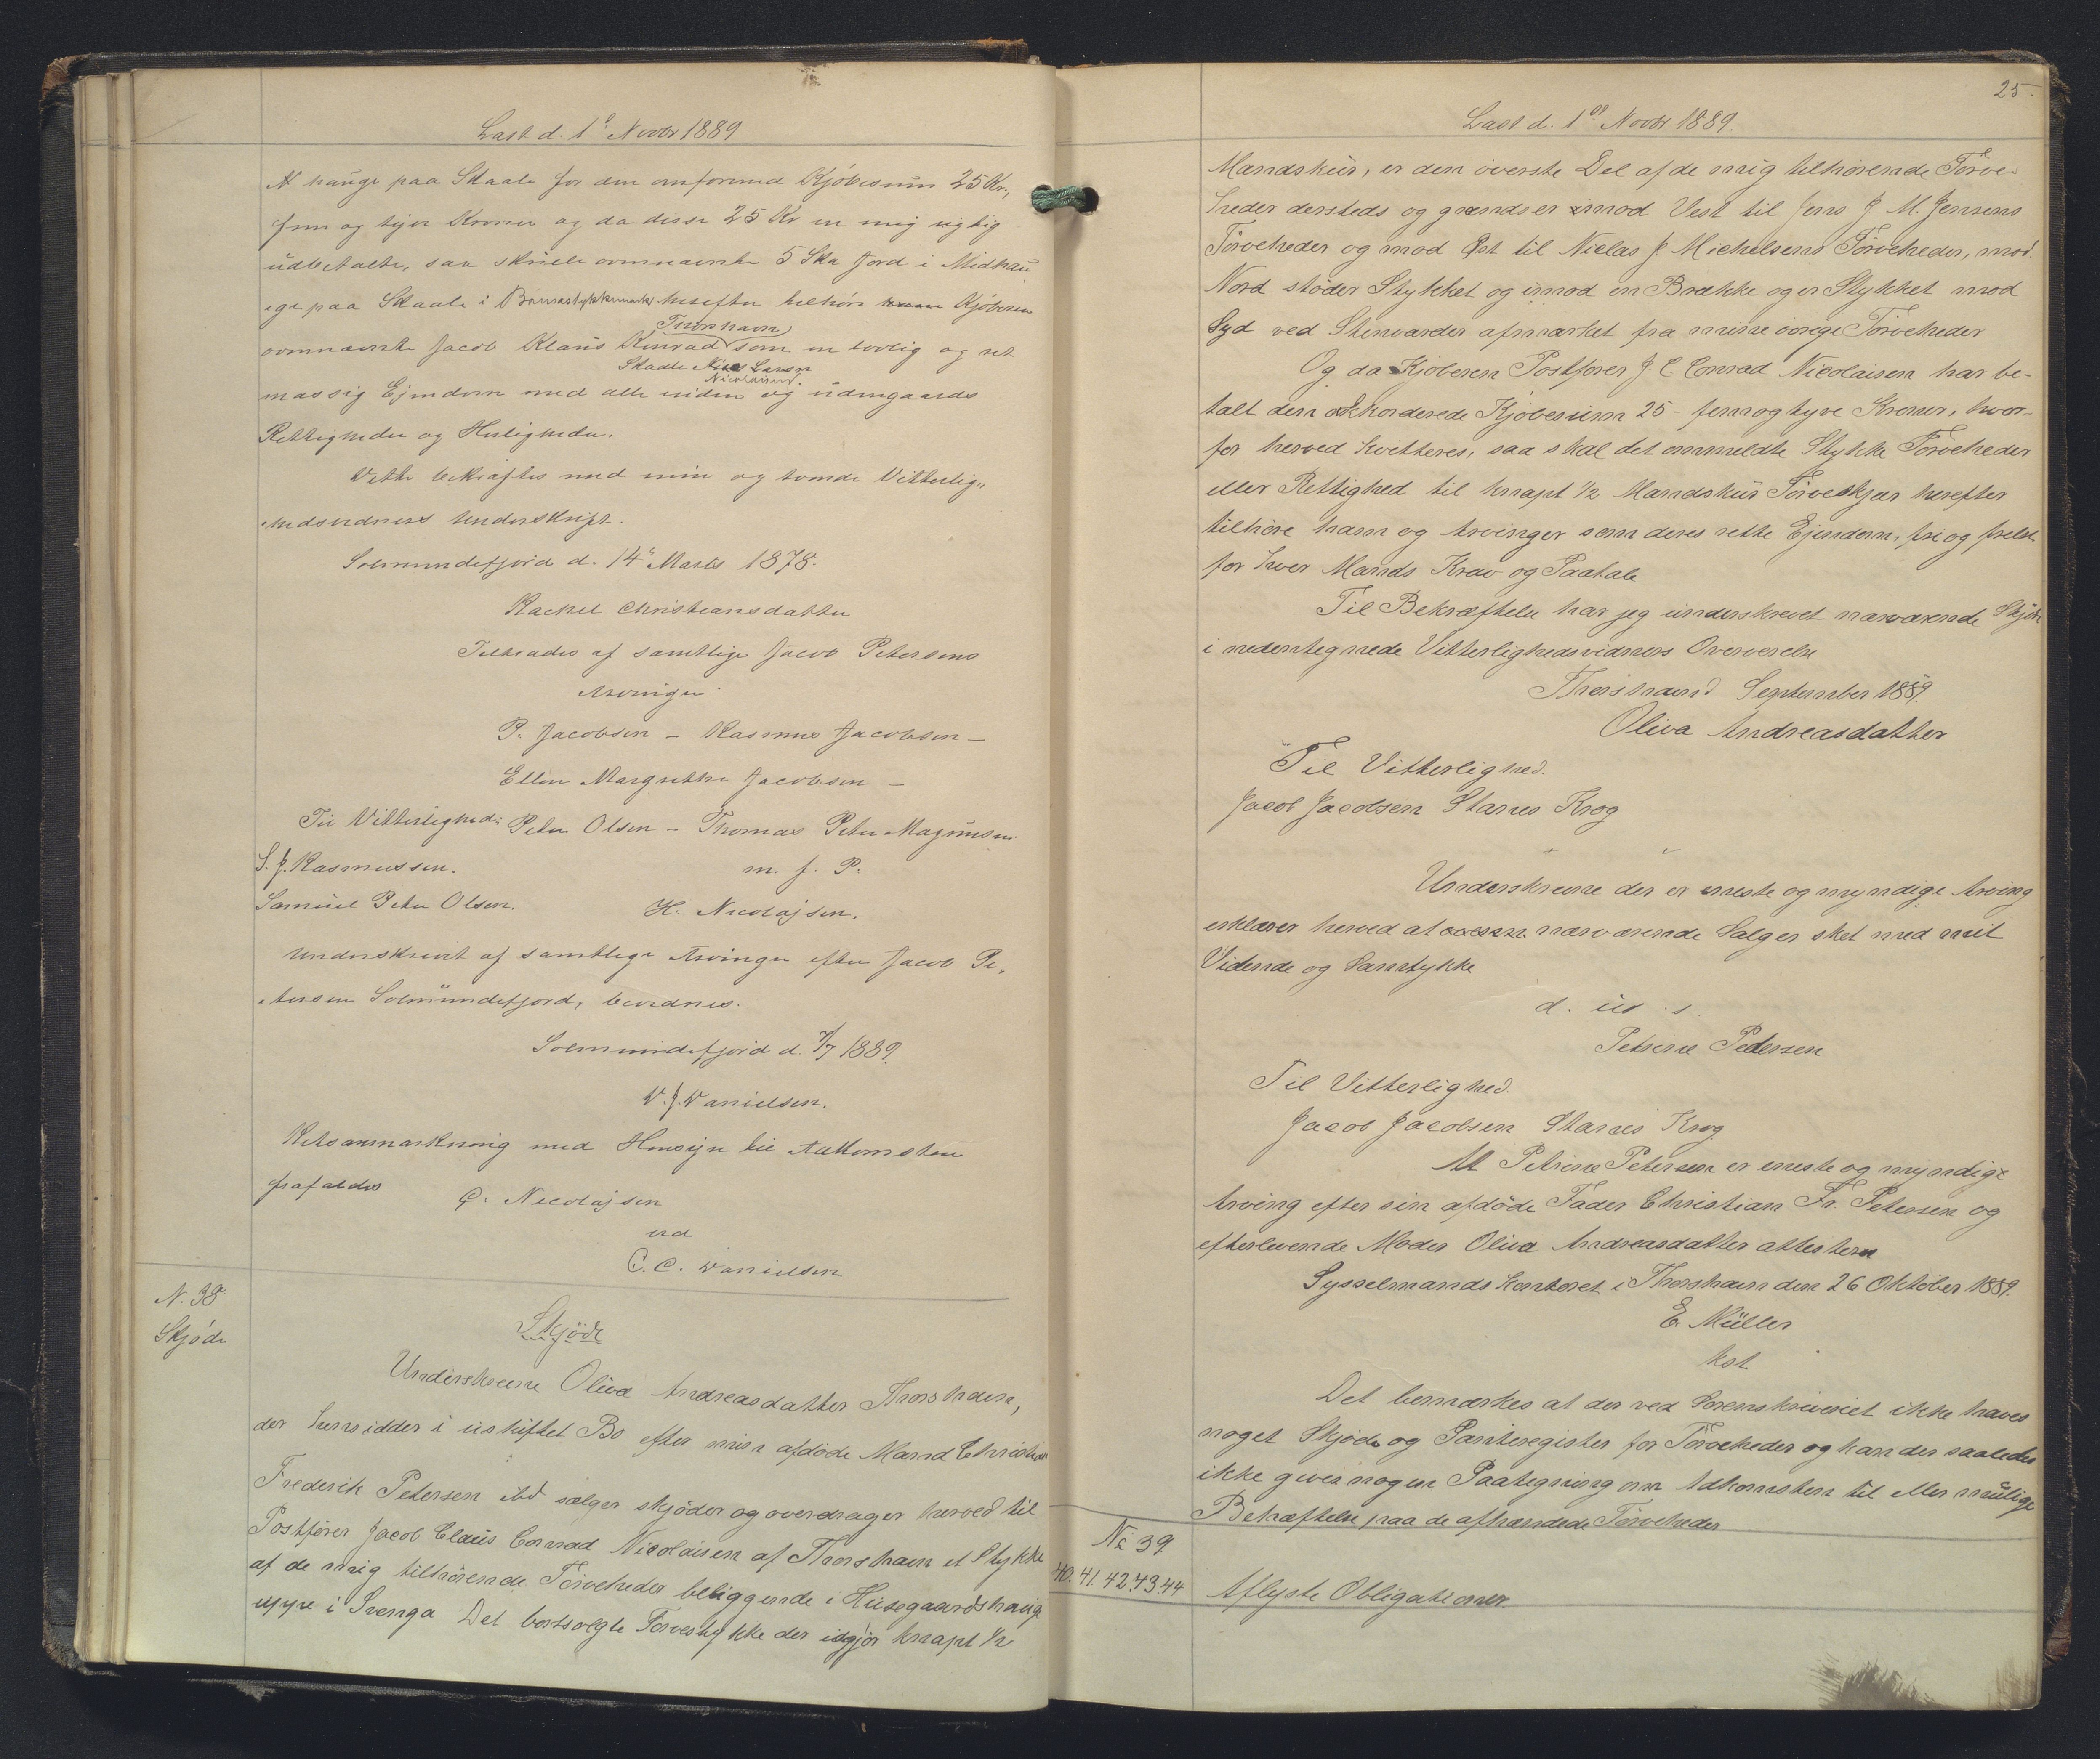 Læst d. 1ᵉ Novbr 1889
hauge paa Skaale for den omforened Kjöbesum 25 Kr.,
fem og tyve Kroner og da disse 25 Kr er mig rigtig
udbetalte, saa skule ovennævnte 5 Skn Jord i Midhau
ege paa Skaale i herefter tilhöre Kjöberen
Thorshavn
ovennævnte Jacob Klaus Konrad som en lovlig og ret
Skaale Niels Larsen
Nicolaisen
mæssig Ejendom med alle inden og udengaards
Rettigheder og Herligheder.
Dette bekræftes med min og tvende Vitterlig„
„hedsvidners Underskrift.
Solmundefjord d. 14ᵈ Marts 1878.
Rachel Christiansdatter
Tiltrædes af samtlige Jacob Petersens
Arvinger
P. Jacobsen – Rasmus Jacobsen –
Ellen Margrethe Jacobsen –
Til Vitterlighed: Peter Olsen – Thomas Peter Magnusen
S. J. Rasmussen. m. f. P.
Samuel Peter Olsen. H. Nicolajsen.
Underskrevet af samtlige Arvinger efter Jacob Pe„
„tersen Solmundefjord, bevidnes.
Solmundefjord d. 7/7 1889.
D. J. Danielsen.
Retsanmærkning med Hensyn til Adkomsten
frafaldes C. Nicolajsen
ved
C. C. Danielsen
N. 38
Skjöde
Skjöde
Underskrevne Oliva Andreasdatter Thorshavn,
der hensidder i uskiftet Bo efter min afdöde Mand Christian
Frederik Petersen ibd sælger skjöder og overdrager herved til
Postförer Jacob Claus Conrad Nicolaisen af Thorshavn et Stykke
af de mig tilhörende Törveheder beliggende i Husegaardshauge
uppe i Svenga Det bortsolgte Törvestykke der udgjör knapt 1/2
25.
Læst d. 1ᵉ Novbr 1889.
Mandskur, er den överste Del af de mig tilhörende Törve-
heder dersteds og grændser imod Vest til Jens J. M. Jensens
Törveheder og mod Øst til Niclas J. Michelsens Törveheder, mod
Nord stöder Stykket og imod en Brække og er Stykket mod
Syd ved Stenvarder afmærket fra mine övrige Törveheder
Og da Kjöberen Postförer J. C. Conrad Nicolaisen har be-
talt den akkorderede Kjöbesum 25 – fem og tyve Kroner, hvor-
for herved kvitteres, saa skal det ommeldte Stykke Törveheder
eller Rettighed til knapt 1/2 Mandskur Törveskjær herefter
tilhöre ham og Arvinger som deres rette Ejendom, fri og frelst
for hver Mands Krav og Paatale
Til Bekræftelse har jeg underskrevet nærværende Skjöde
i nedentegnede Vitterlighedsvidners Overværelse
Thorshavn d September 1889.
Oliva Andreasdatter
Til Vitterlighed.
Jacob Jacobsen Krog
Underskrevne der er eneste og myndige Arving
erklærer herved at nærværende Salg er sket med mit
Vidende og Samtykke
d. u. s.
Petrine Pedersen
Til Vitterlighed.
Jacob Jacobsen Krog
At Petrine Petersen er eneste og myndige
Arving efter sin afdöde Fader Christian Fr. Petersen og
efterlevende Moder Oliva Andreasdatter attesteres
Sysselmandskontoret i Thorshavn den 26 Oktober 1889.
E. Müller
kst
Det bemærkes at der ved Sorenskriveriet ikke haves
noget Skjöde og Panteregister for Törveheder og kan der saaledes
ikke gives nogen Paategning om Adkomsten til eller mulige
Behæftelse paa de afhændede Törveheder
No 39
40. 41. 42. 43. 44 Aflyste Obligationer.